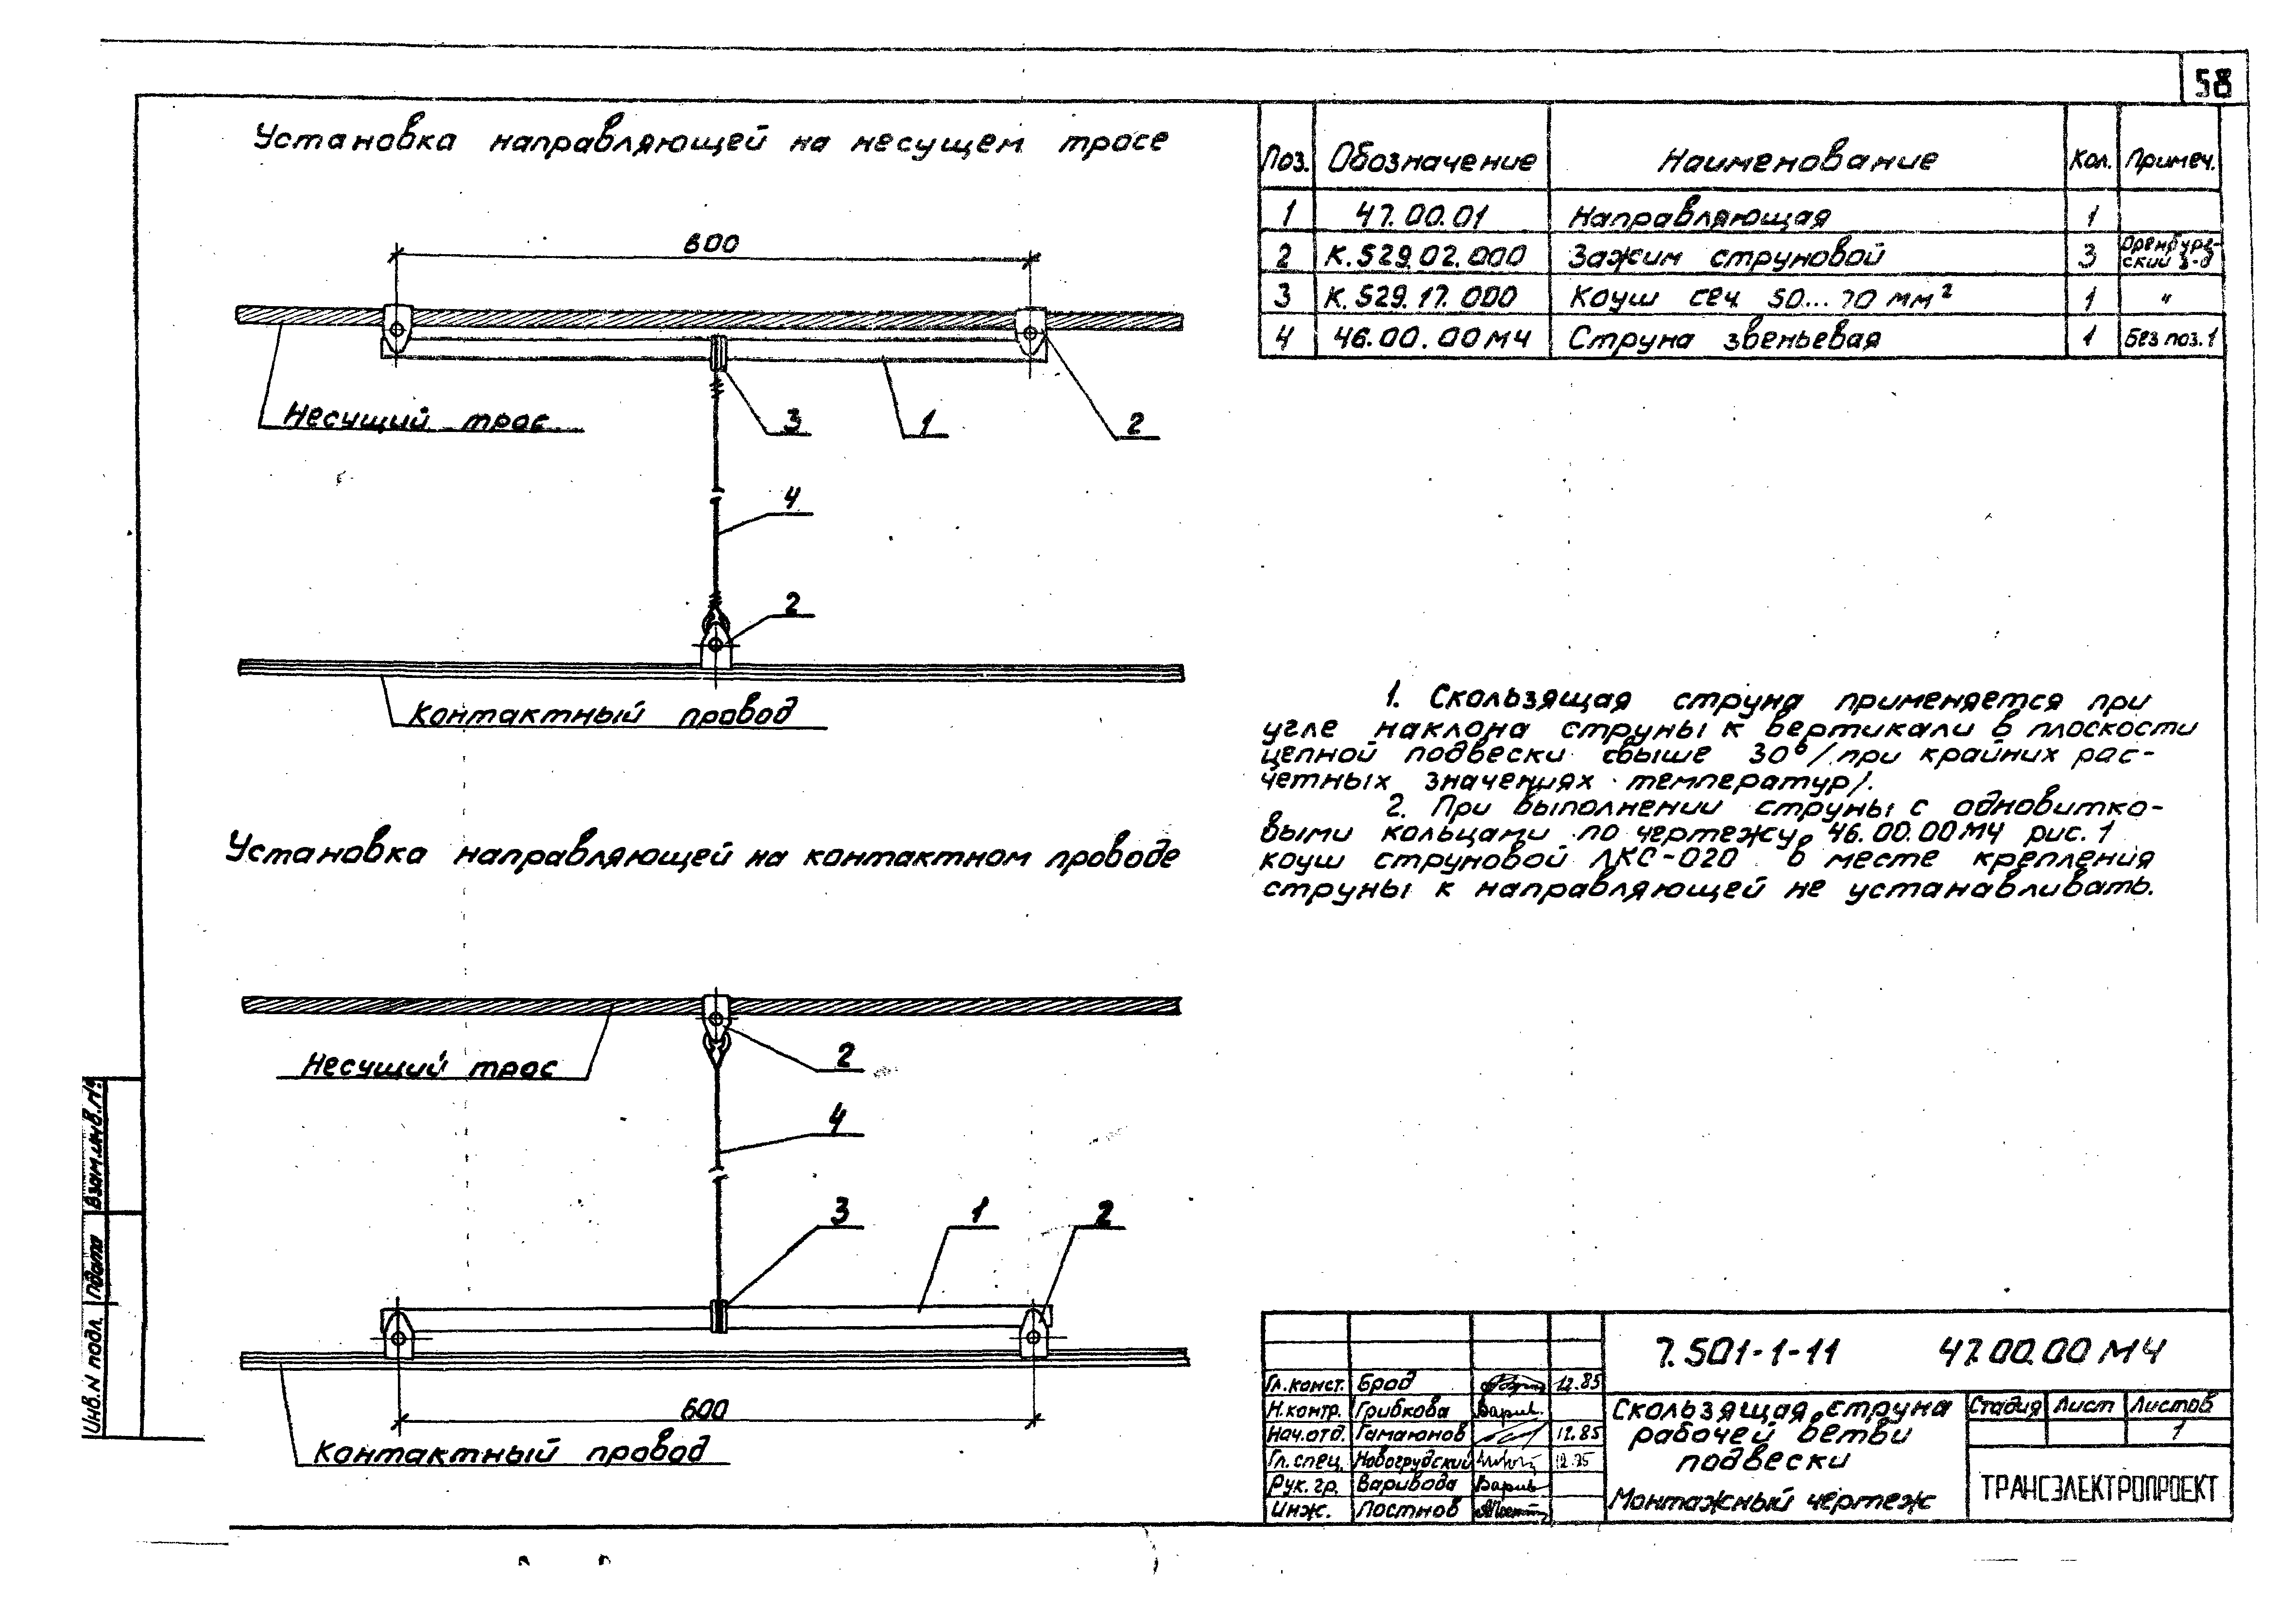 58
Установка направляющей на несущем тросе
600
Несущий трос
3
1
2
4
2
Контактный провод
Установка направляющей на контактном проводе
Несущий трос
2
4
3
1
2
600
Контактный провод
Поз. Обозначение Наименование Кол. Примеч.
1 47.00.01 Направляющая 1
2 К.529.02.000 Зажим струновой 3 Оренбург-
ский з-д
3 К.529.17.000 Коуш сеч. 50...70 мм² 1 "
4 46.00.00МЧ Струна звеньевая 1 Без поз.1
1. Скользящая струна применяется при
угле наклона струны к вертикали в плоскости
цепной подвески свыше 30°/при крайних рас-
четных значениях температур/.
2. При выполнении струны с одновитко-
выми кольцами по чертежу 46.00.00МЧ рис. 1
коуш струновой ЛКС-020 в месте крепления
струны к направляющей не устанавливать.
7.501-1-11 47.00.00 МЧ
Гл.конст. Брод 12.85
Н.контр. Грибкова Варив.
Нач.отд. Гамаюнов 12.85
Гл.спец. Новогрудский 12.85
Рук.гр. Варивода Варив
Инж. Постнов
Скользящая струна
рабочей ветви
подвески
Монтажный чертеж
Стадия Лист Листов
1
ТРАНСЭЛЕКТРОПРОЕКТ
Взам.инв.№
Пдата
Инв.N подл.